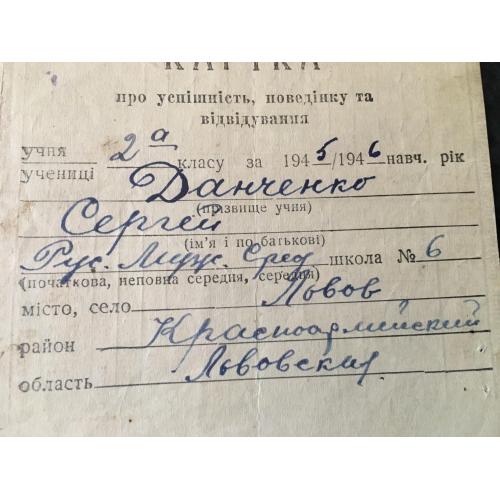 КАРТКА
про успішність, поведінку та
відвідування
учня
учениці 2а класу за 1945/1946 навч. рік
Данченко
(прізвище учня)
Сергей
(ім'я і по батькові)
Рус. Сред школа № 6
(початкова, неповна середня, середня)
місто, село Львов
район Красноармийский
область Львовския